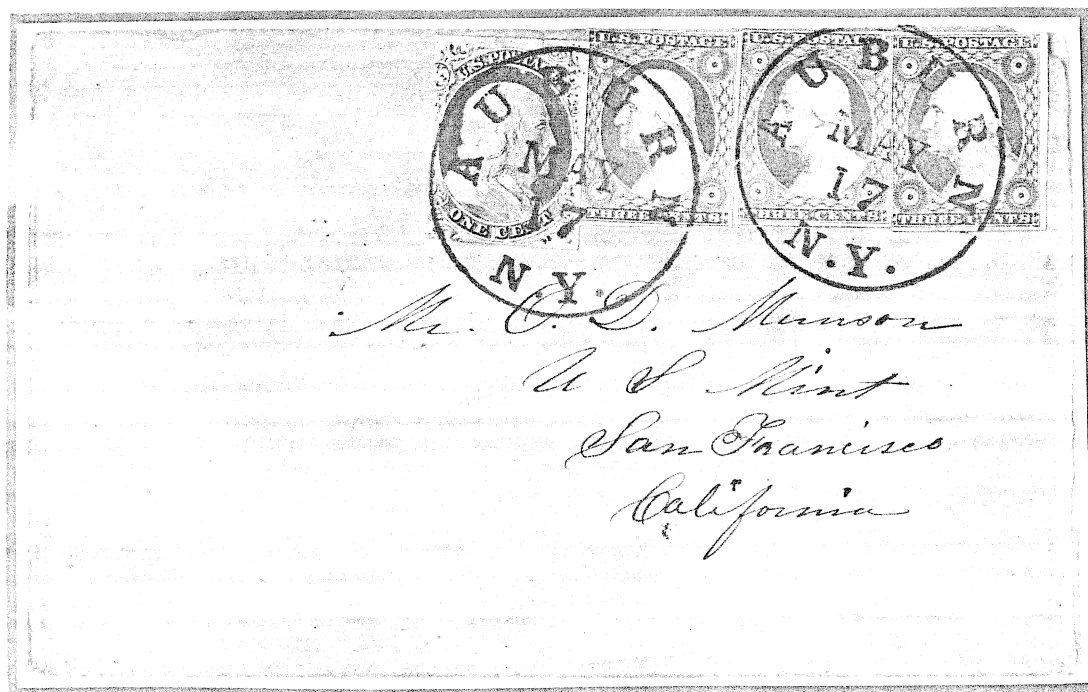 U.S. POSTAGE
ONE CENT
U.S. POSTAGE
THREE CENTS
U.S. POSTAGE
THREE CENTS
U.S. POSTAGE
THREE CENTS
AUBURN
MAY
17
N.Y.
AUBURN
MAY
17
N.Y.
Mr. O. D. Munson
U S Mint
San Francisco
California